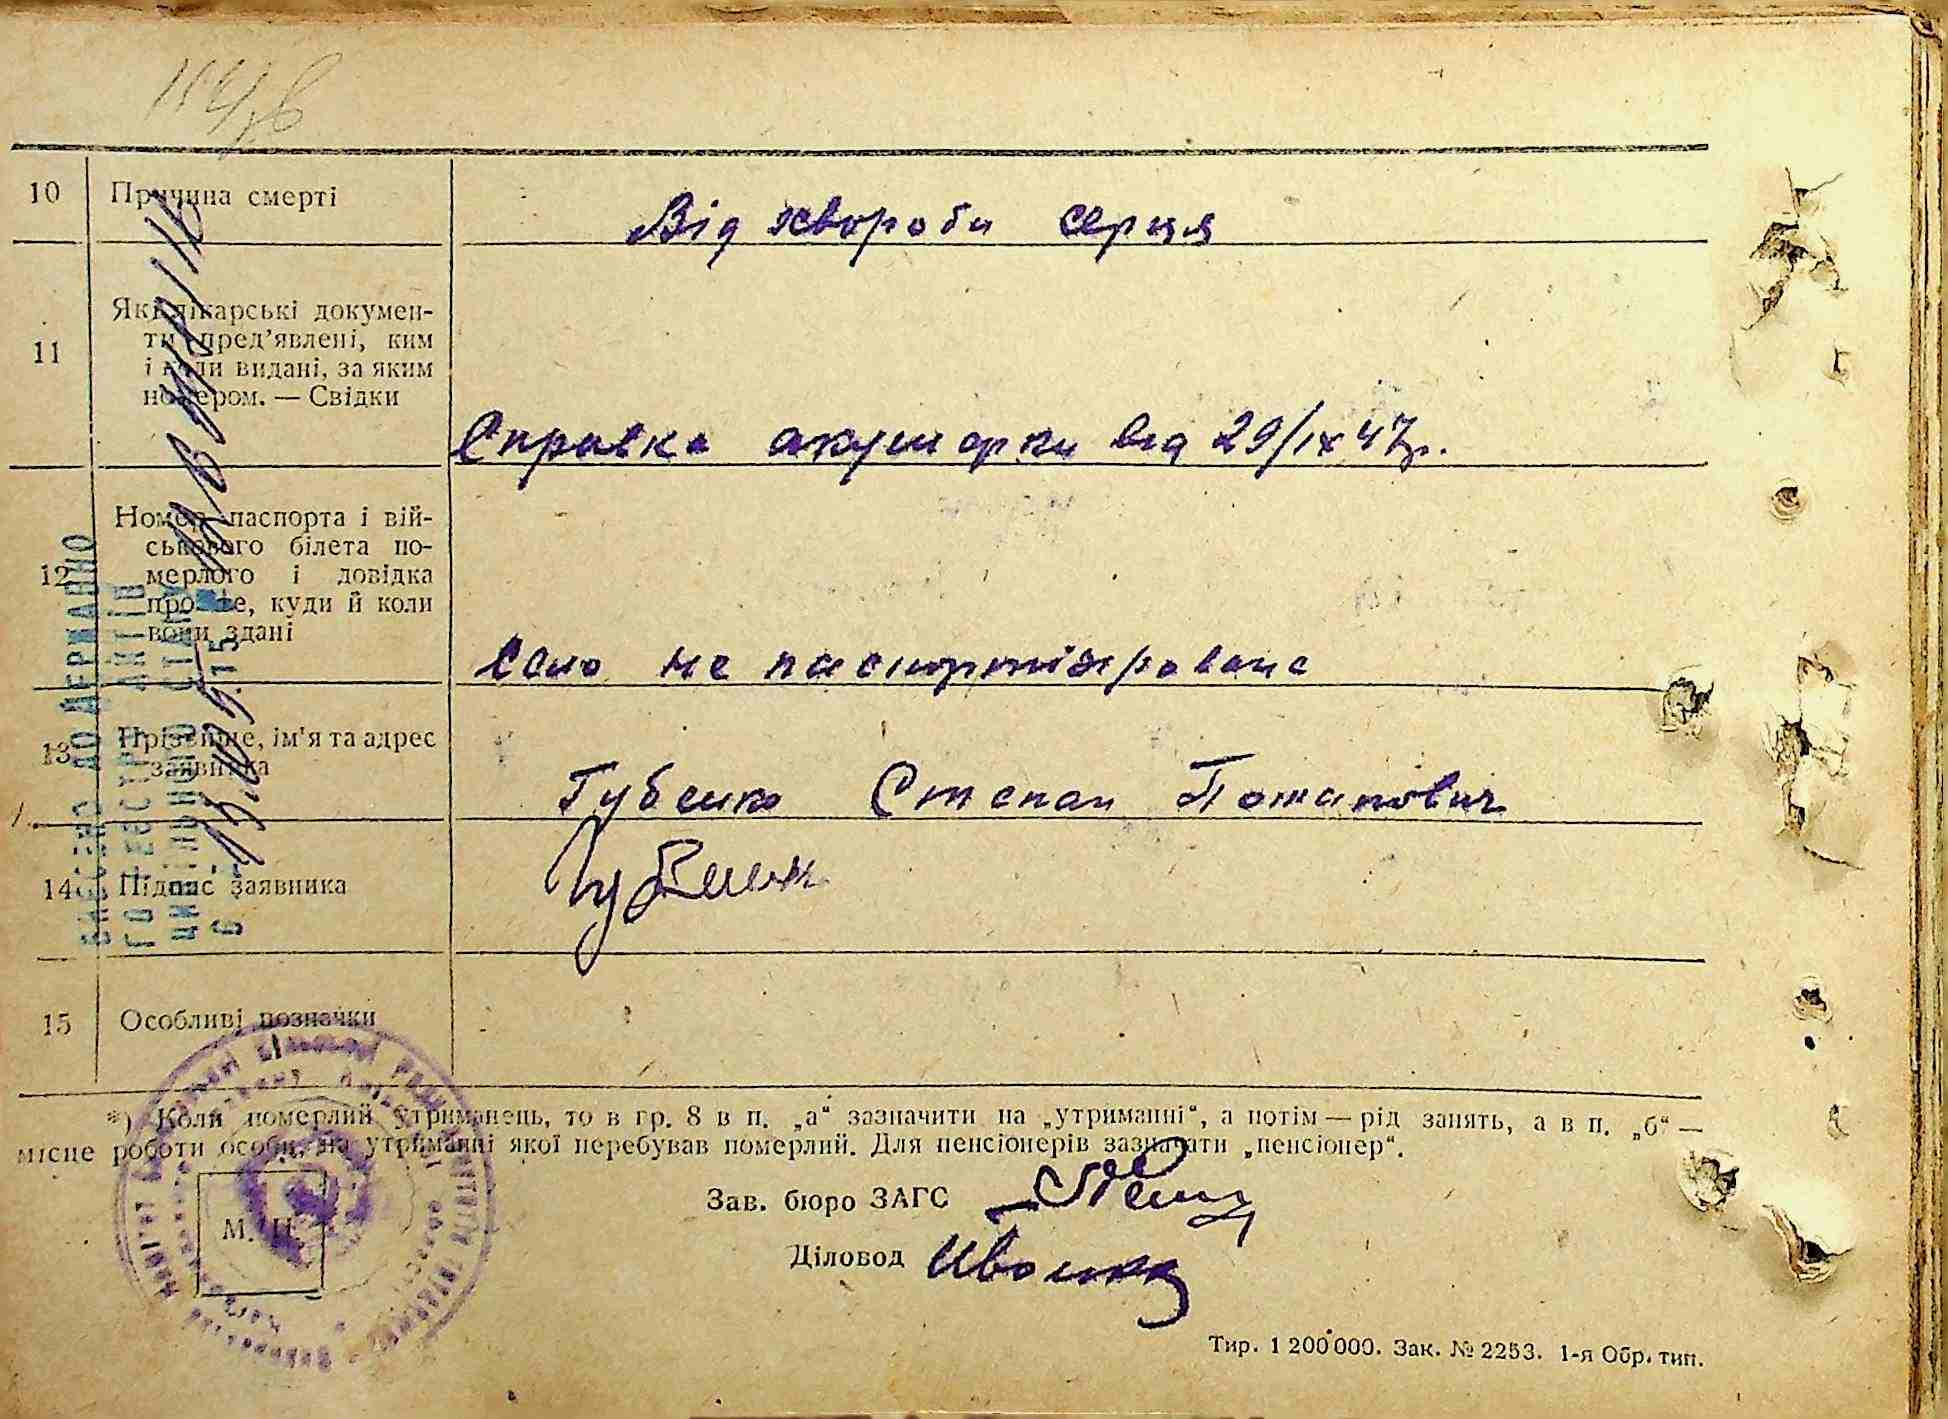 10 Причина смерті
Від хвороби серця
11 Які лікарські докумен-
ти пред’явлені, ким
і коли видані, за яким
номером. — Свідки
Справка акушорки від 29/ІХ 47р.
12 Номер паспорта і вій-
ськового білета по-
мерлого і довідка
про те, куди й коли
вони здані
Село не паспортізіровано
13 Прізвище, ім’я та адрес
заявника
Губенко Степан Потапович
14 Підпис заявника
15 Особливі позначки
*) Коли померлий утриманець, то в гр. 8 в п. „а“ зазначити на „утриманні“, а потім — рід занять, а в п. „б“ —
місце роботи особи, на утриманні якої перебував померлий. Для пенсіонерів зазначати „пенсіонер“.
Зав. бюро ЗАГС
М. П.
Діловод
Тир. 1 200 000. Зак. № 2253. 1-я Обр. тип.
ВНЕСЕНО ДО ДЕРЖАВНО
ГО РЕЄСТРУ АКТІВ
ЦИВІЛЬНОГО СТАНУ